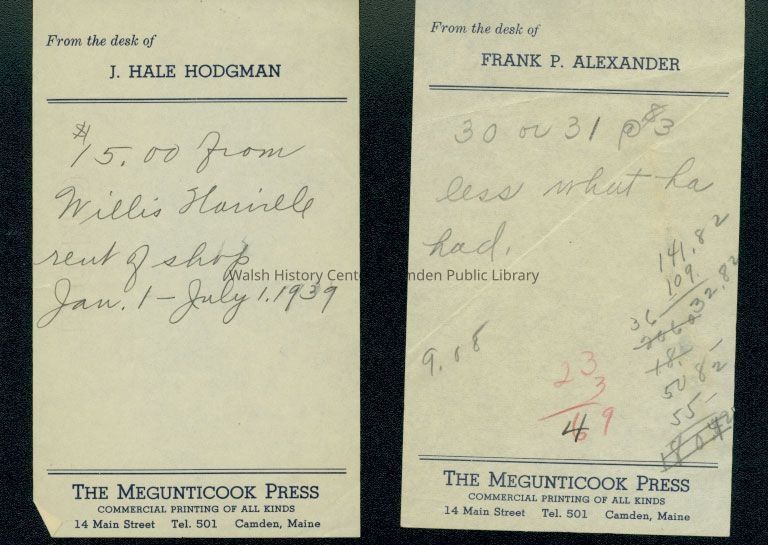 From the desk of
J. HALE HODGMAN
$15.00 from
Willis
rent of shop
Jan. 1 – July 1. 1939
THE MEGUNTICOOK PRESS
COMMERCIAL PRINTING OF ALL KINDS
14 Main Street Tel. 501 Camden, Maine
From the desk of
FRANK P. ALEXANDER
30 or 31 @ 3
less what ha
had.
141.82
109.
32.82
36
18.
50 82
55 –
9.08
23
3
Walsh History Cente mden Public Library
THE MEGUNTICOOK PRESS
COMMERCIAL PRINTING OF ALL KINDS
14 Main Street Tel. 501 Camden, Maine